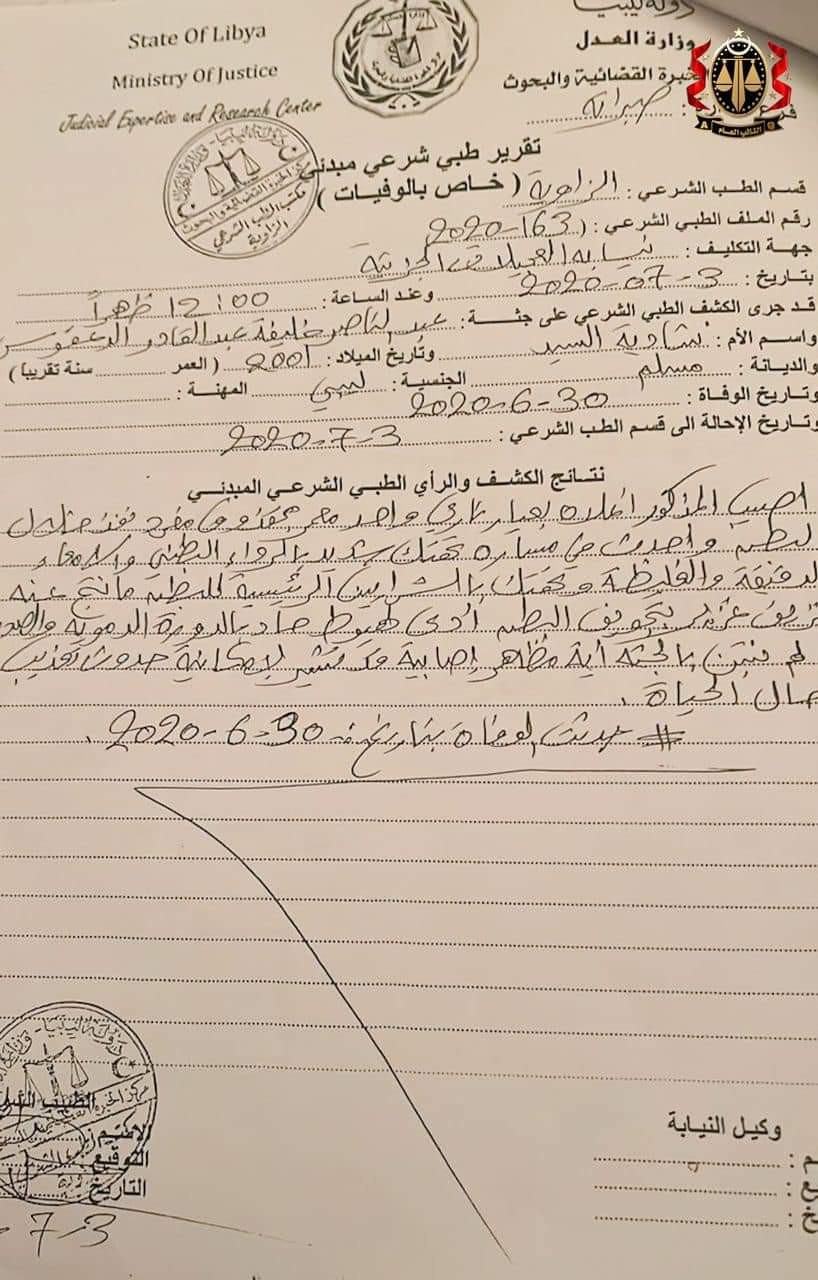 State Of Libya
Ministry Of Justice
Judicial Expertise and Research Center
دولة ليبيا
وزارة العدل
الخبرة القضائية والبحوث
فرع : صبراتة
النائب العام
تقرير طبي شرعي مبدئي
( خاص بالوفيات )
قسم الطب الشرعي : الزاوية
رقم الملف الطبي الشرعي : ( 163-2020
جهة التكليف : نيابة العجيلات الجزئية
بتاريخ : 3-07-2020 وعند الساعة : 12:00 ظهراً
قد جرى الكشف الطبي الشرعي على جثة : عبد الناصر خليفة عبد القادر
واسم الأم : شادية السيد وتاريخ الميلاد : 2001 ( العمر سنة تقريبا )
والديانة : مسلم الجنسية : ليبي المهنة :
وتاريخ الوفاة : 30-6-2020
وتاريخ الإحالة الى قسم الطب الشرعي : 3-7-2020
نتائج الكشف والرأي الطبي الشرعي المبدئي
أصيب المذكور أعلاه بعيار ناري واحد معمر بمقذوف مفرد نفذ خلال
البطن وأحدث في مساره تهتك شديد بالرداء البطني والأمعاء
الدقيقة والغليظة وتهتك بالشرايين الرئيسية للبطن ما نتج عنه
نزيف غزير بتجويف البطن أدى لهبوط حاد بالدورة الدموية
لم نتبين بالجثة أية مظاهر إصابية قد تشير لإمكانية حدوث تعذيب
حال الحياة .
# حدثت الوفاة بتاريخ : 30-6-2020 .
وكيل النيابة
الطبيب
الاسم :
التوقيع :
التاريخ :
7-3